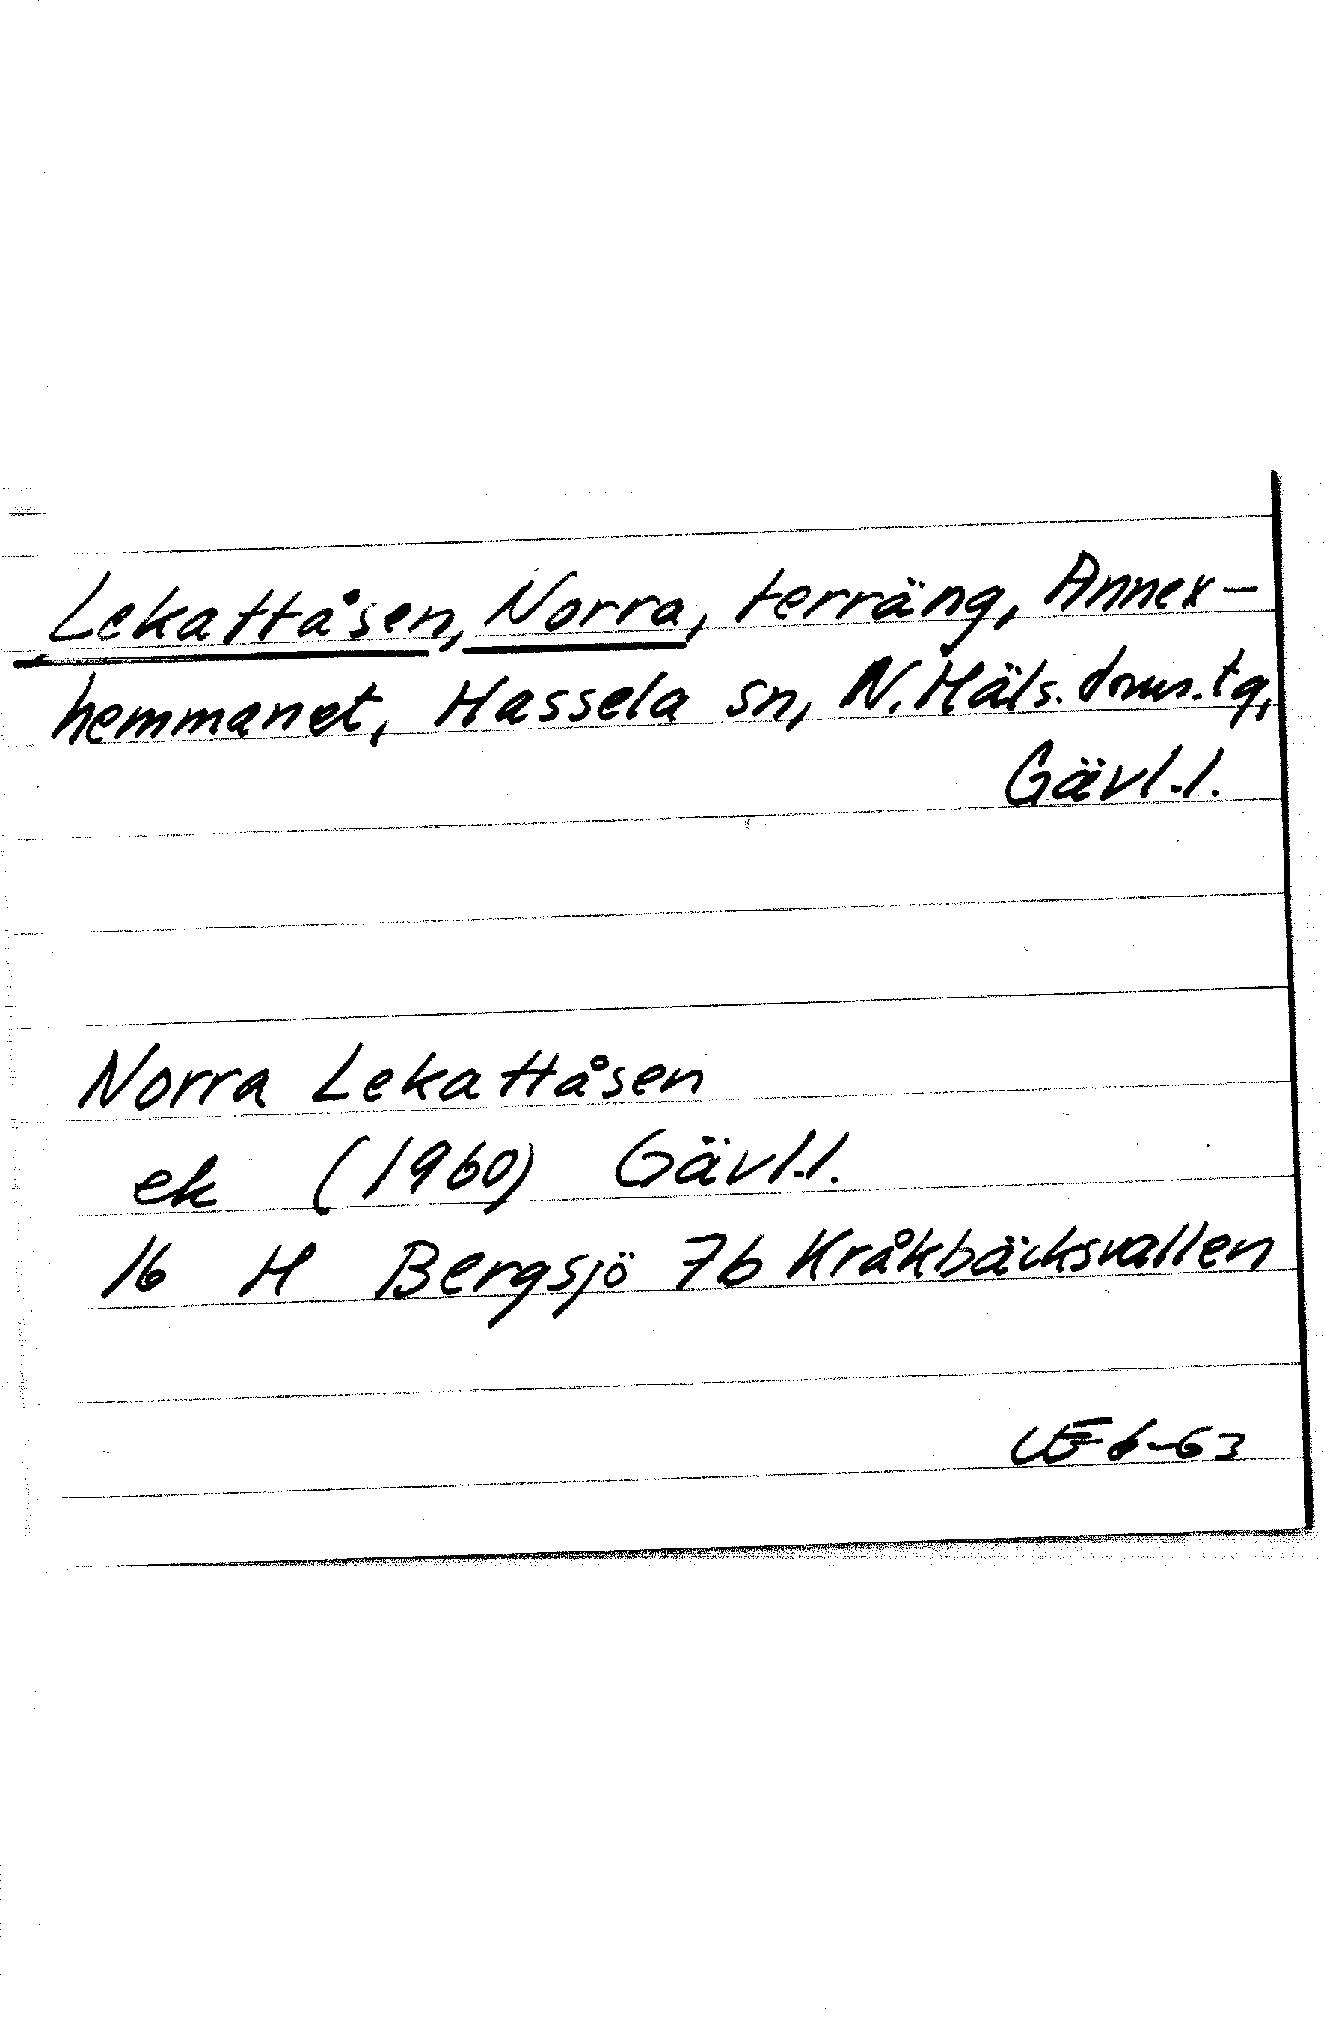 Lekattåsen, Norra, terräng, Annex-
hemmanet, Hassela sn, N. Häls. doms. tg,
Gävl.l.
Norra Lekattåsen
ek (1960) Gävl.l.
16 H Bergsjö 7b Kråkbäcksvallen
6-63